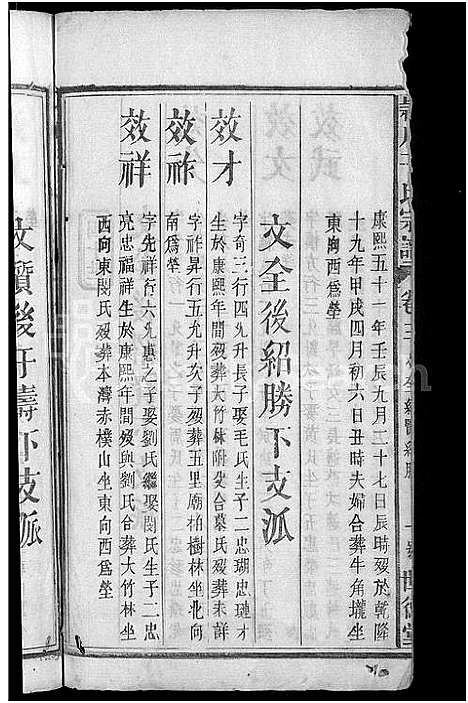 康熙五十一年壬辰九月二十七日辰時歿於乾隆
十九年甲戌四月初六日丑時夫婦合葬牛角壠坐
東向西爲塋
文全後紹勝下支派
效才
字奇三行四允升長子娶毛氏生子二忠瑚忠璉才
生於康熙年間歿葬大竹林附父合墓氏歿葬未詳
效祚
字祚昇行五允升次子歿葬五里廟柏樹林坐北向
南爲塋
效祥
字先祥行六允惠之子娶劉氏繼娶閔氏生子二忠
亮忠福祥生於康熙年間歿與劉氏合葬大竹林坐
西向東閔氏歿葬本灣赤樸山坐東向西爲塋
下支派
氏宗譜